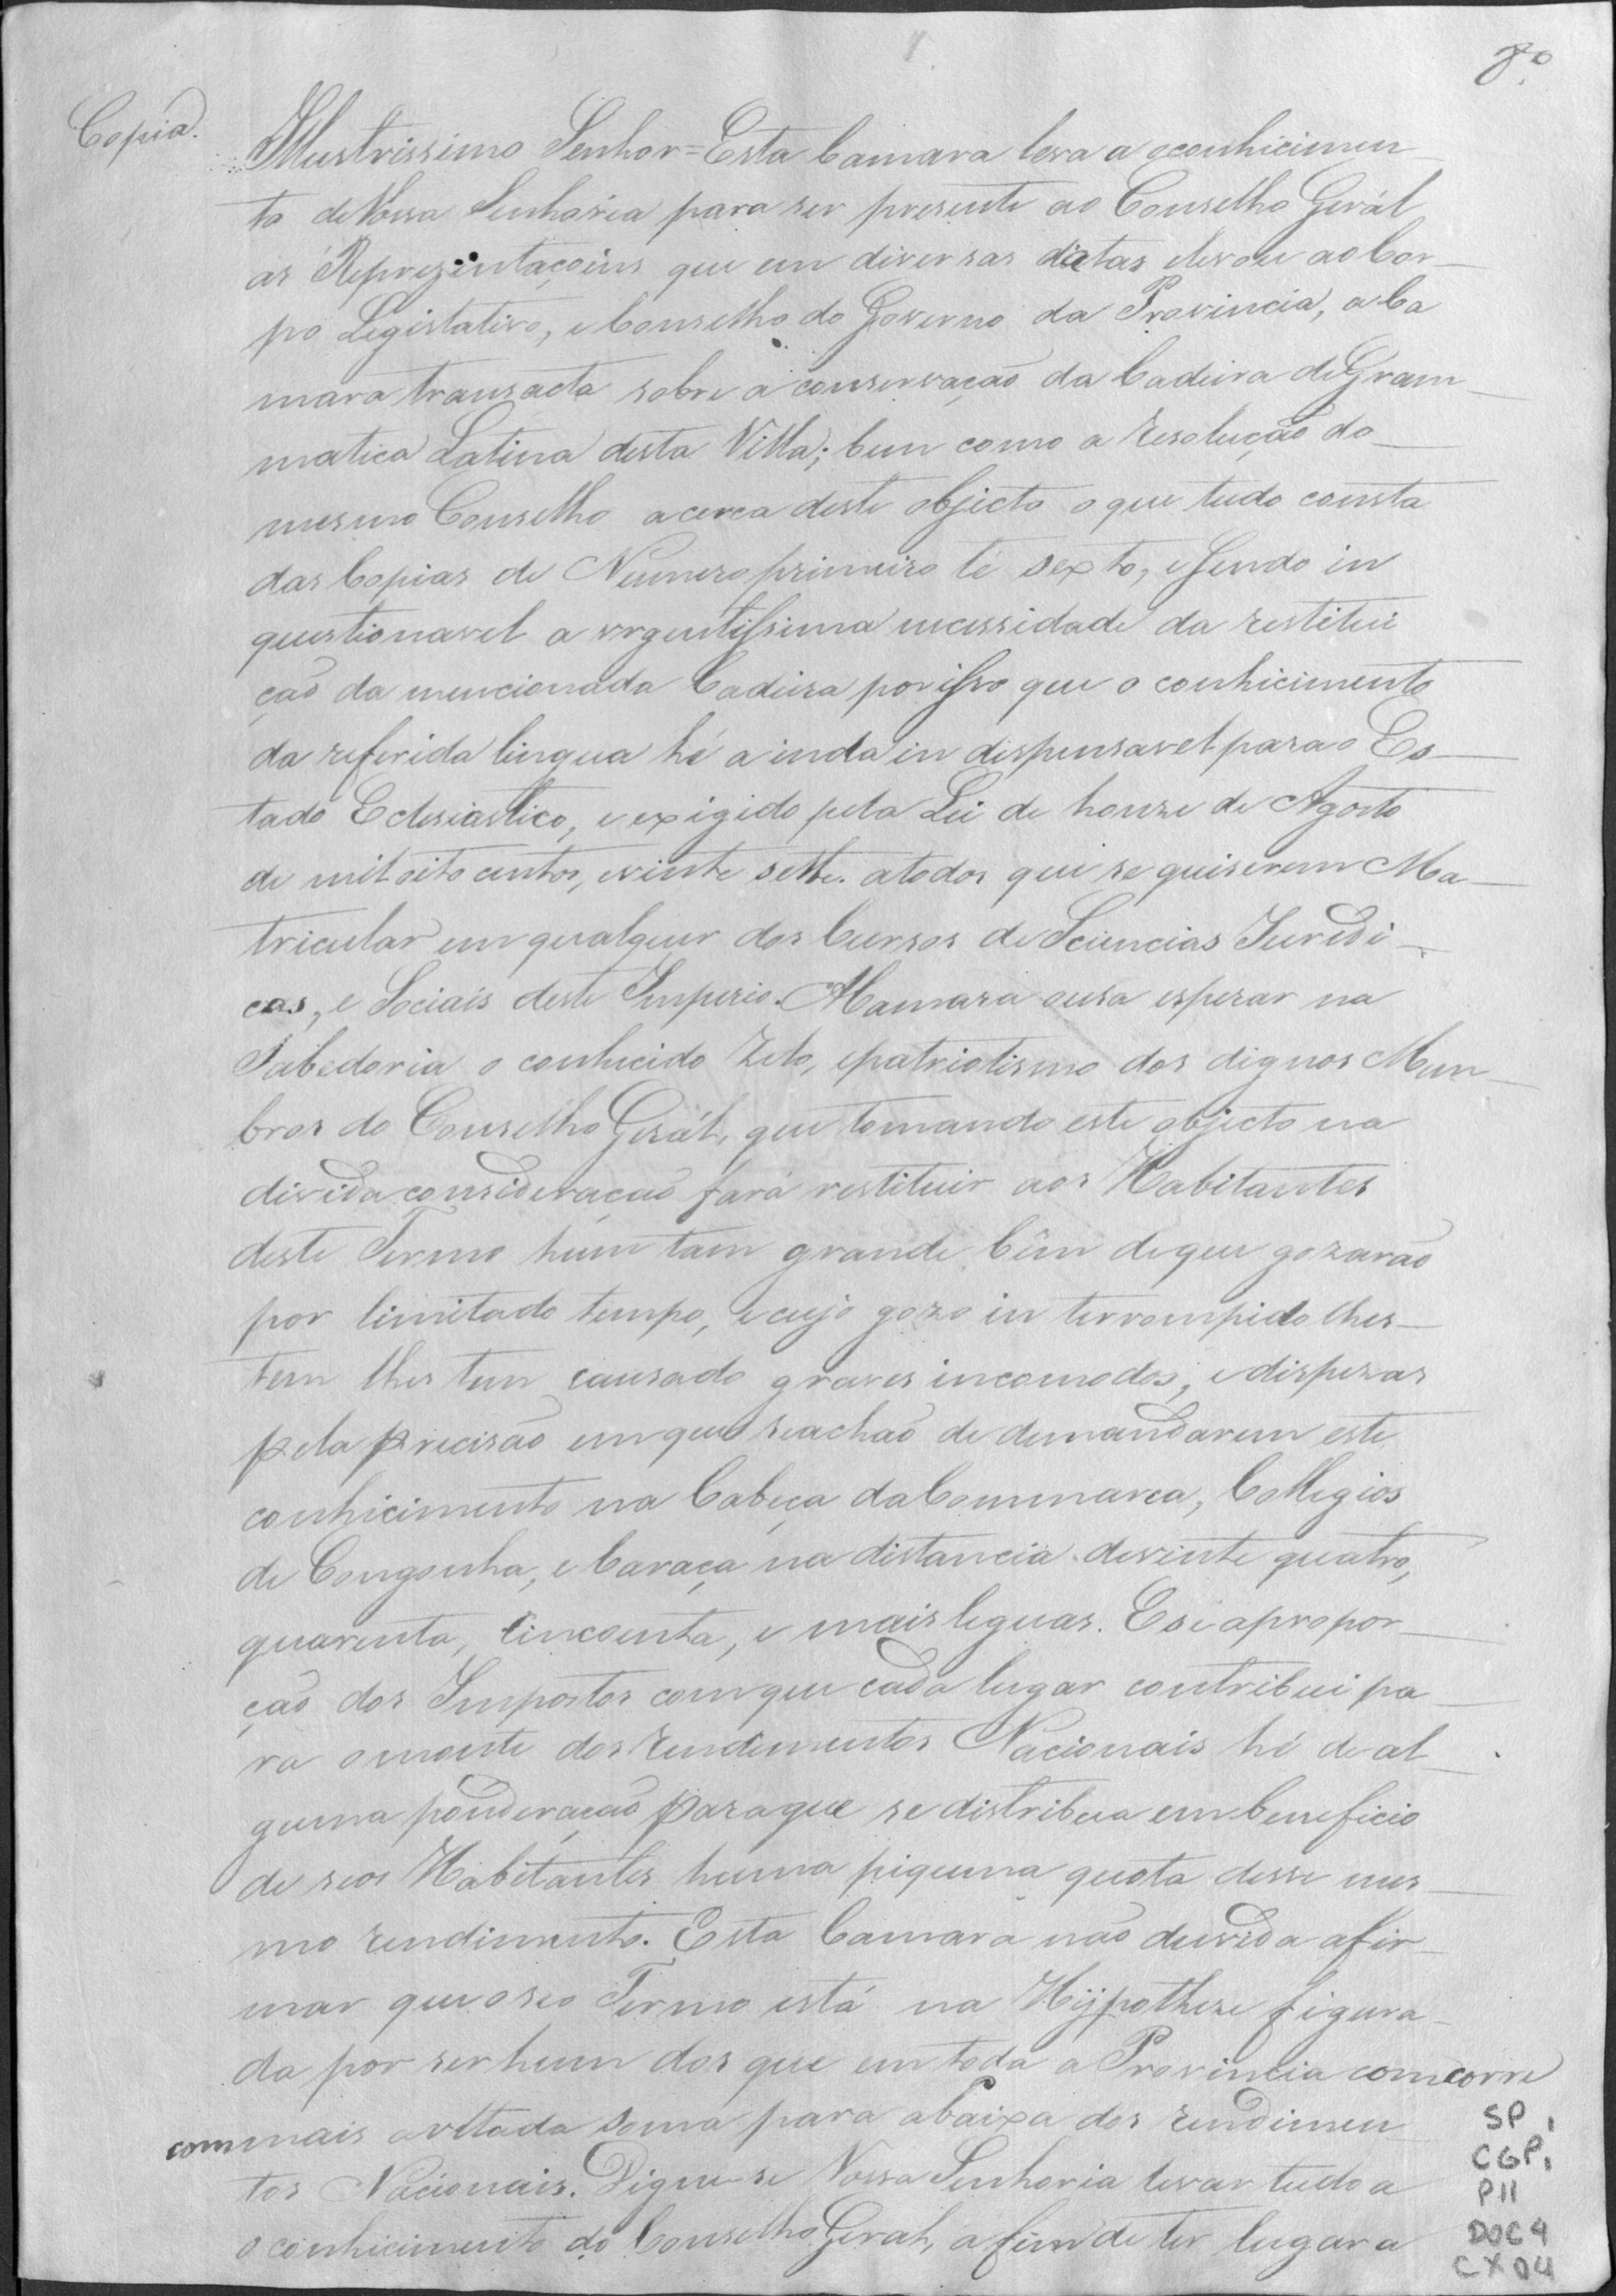 8º
Copia.
Illustrissimo Senhor = Esta Camara leva a oconhicimen
to deVossa Senhoria para ser presente ao Conselho Gerál
as Reprezintaçoins que em diversas datas elevou aoCor-
po Legislativo, e Conselho do Governo da Provincia, aCa
mara transacta sobre a conservação da Cadeira deGram-
matica Latina desta Villa; bem como a Resolução do
mesmo Conselho acerca deste objecto o que tudo consta
das Copias de Numero primeiro té sexto, eSendo in
questionavel a vrgentissima necessidade da restitui
ção da mencionada Cadeira porisso que o conhicimento
da referida lingua hé ainda in dispensavel para o Es-
tado Eclesiastico, e exigido pela Lei de honze de Agosto
de mil oito centos, evinte sette. atodos que se quiserem Ma-
tricular em qualquer dos Cursos de Sciencias Juridi-
cas, e Sociais deste Imperio. ACamara ousa esperar na
Sabedoria o conhecido Zelo, epatriotismo dos dignos Mem-
bros do Conselho Gerál, que tomando este objecto na
divida consideração fará restituir aos Habitantes
deste Termo hum tam grande bêm deque gozarão
por limitado tempo, ecujo gozo in terrompido lhes-
tem lhes tem causado graves incomodos, edispezas
pela precisão emque seachaõ de demandarem este
conhicimento na Cabeça daCommarca, Collegios
de Congonha, e Caraça na distancia devinte quatro,
quarenta, cincoenta, e mais leguas. Esi apropor-
ção dos Impostos comque cada lugar contribui pa-
ra omonte dos rendimentos Nacionais hé de al-
guma ponderação paraque se distribua embeneficio
de seos Habitantes huma piquena quota desse mes-
mo rendimento. Esta Camara não duvida afir-
mar que oseo Termo está na Hypotheze figura-
da por ser hum dos que emtoda a Provincia comcorre
com mais avltada soma para abaixa dos rendimen
tos Nacionais. Digne-se Vossa Senhoria levar tudo a
o conhicimento do Conselho Geral, afim de ter lugar a
SP,
CGP1
P11
DOC4
CX04